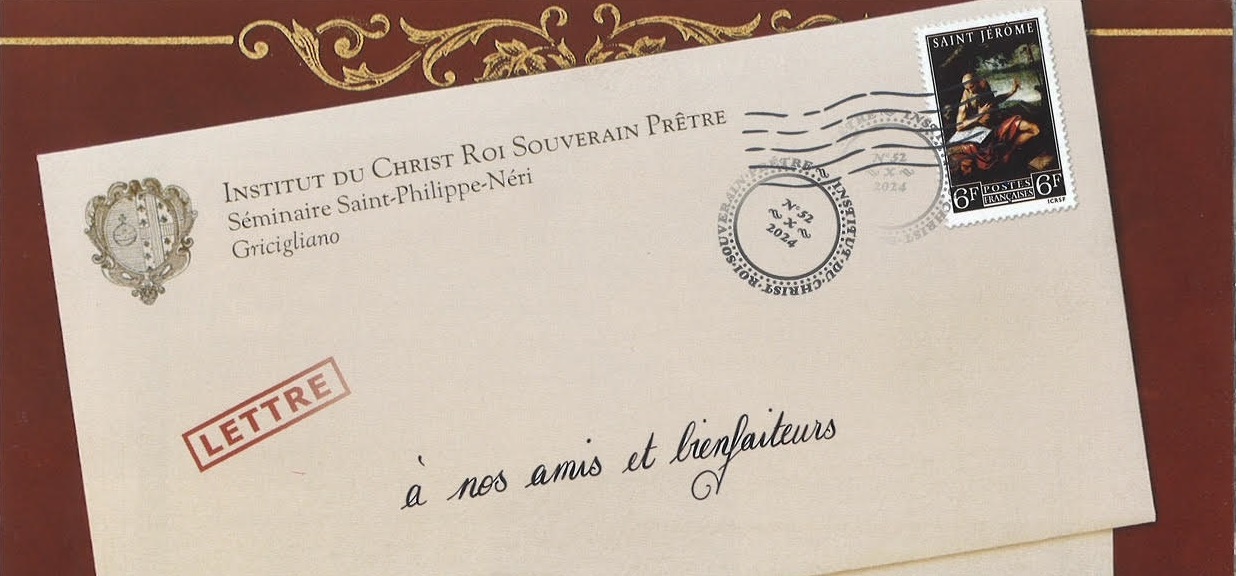 INSTITUT DU CHRIST ROI SOUVERAIN PRÊTRE
Séminaire Saint-Philippe-Néri
Gricigliano
SAINT JÉRÔME
6F POSTES FRANÇAISES 6F
ICRSP
INSTITUT·DU·CHRIST·ROI·SOUVERAIN·PRÊTRE
N°52
X
2024
N°52
X
2024
LETTRE
à nos amis et bienfaiteurs